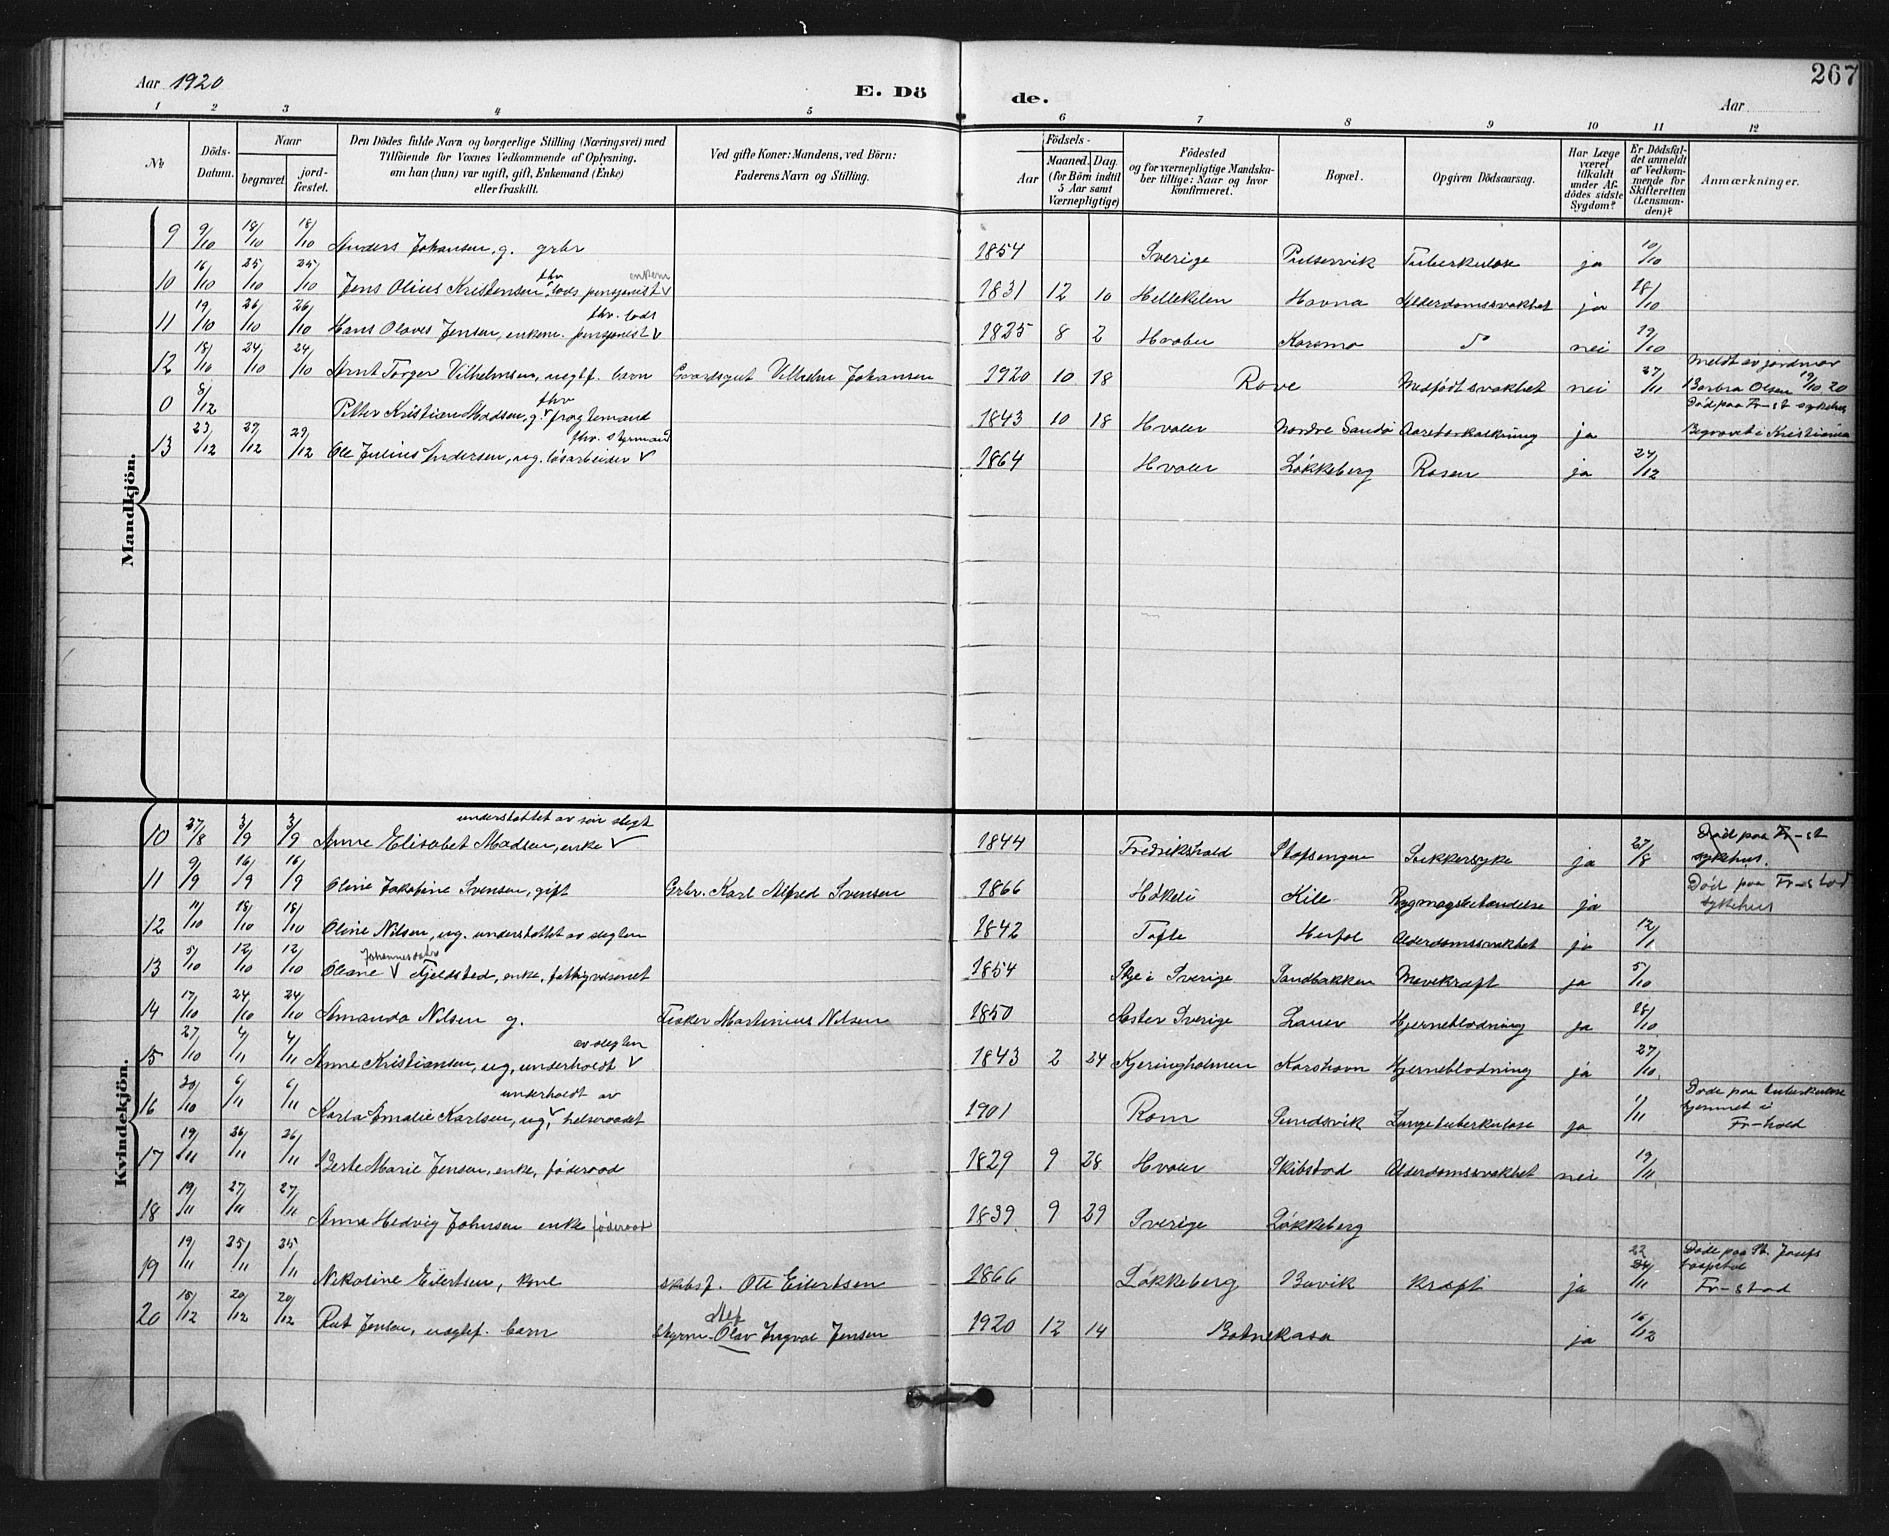 267
Aar 1920
E. Dö de.
Aar
1 2 3 4 5 6 7 8 9 10 11 12
No
Döds-Datum.
Naar
begravet.
jord-fæstet.
Den Dödes fulde Navn og borgerlige Stilling (Næringsvei) med
Tilföiende for Voxnes Vedkommende af Oplysning.
om han (hun) var ugift, gift, Enkemand (Enke)
eller fraskilt.
Ved gifte Koner: Mandens, ved Börn:
Faderens Navn og Stilling.
Födsels-
Aar
Maaned. Dag.
(for Börn indtil
5 Aar samt
Værnepligtige)
Födested
og for værnepligtige Mandska-
ber tillige: Naar og hvor
konfirmeret.
Bopæl.
Opgiven Dödsaarsag.
Har Læge
været
tilkaldt
under Af-
dödes sidste
Sygdom?
Er Dödsfal-
det anmeldt
af Vedkom-
mende for
Skifteretten
(Lensman-
den)?
Anmærkninger.
Mandkjön.
9 9/10 18/10 18/10 Anders Johansen, g. grbr 1854 Sverige Pulservik Tuberkulose ja 10/10
10 16/10 25/10 25/10 Jens Olius Kristensen, fhv lods pensjonist enkem 1831 12 10 Hellekilen Havna Alderdomssvakhet ja 18/10
11 19/10 26/10 26/10 Hans Olaves Jensen, enkem. fhv. lods pensjonist 1825 8 2 Hvaler Korsmo do nei 19/10
12 18/10 24/10 24/10 Arnt Torger Vilhelmsen, uegtf. barn Gaardsgut Vilhelm Johansen 1920 10 18 Rove Medfødt svakhet nei 27/11 Meldt av jordmor Barbra Olsen 19/10 20
0 8/12 Petter Kristian Madsen, g. fhv fragtemand 1843 10 18 Hvaler Nordre Sandø Aareforkalkning ja Død paa Fr-st sykehus Begravet i Kristiania
13 23/12 29/12 29/12 Ole Julius Andersen, ug. fhv. styrmand løsarbeider 1864 Hvaler Løkkeberg Rosen ja 24/12
Kvindekjön.
10 27/8 3/9 3/9 Anne Elisabet Madsen, enke understøttet av sin slegt 1844 Fredrikshald Stafsengen Sukkersyke ja 27/8 Død paa Fr-st sykehus.
11 9/9 16/9 16/9 Oline Jakobine Svensen, gift Grbr. Karl Alfred Svensen 1866 Håkeli Kile Rygmargsbetændelse ja Død paa Fr-stad sykehus
12 11/10 18/10 18/10 Oline Nilsen, ug. understøttet av slegten 1842 Tofte Herføl Alderdomssvakhet ja 12/1
13 5/10 12/10 12/10 Oleane Johannesdatr Fjeldstad, enke, fattigvæsenet 1854 Skje i Sverige Sandbakken Mavekræft ja 5/10
14 17/10 24/10 24/10 Amanda Nilsen g. Fisker Martinius Nilsen 1850 Aaster Sverige Lauer Hjerneblødning ja 18/10
15 27/10 4/11 4/11 Anne Kristiansen, ug, underholdt av slegten 1843 2 24 Kjeringholmen Korshavn Hjerneblødning ja 27/10
16 30/10 6/11 6/11 Karla Amalie Karlsen, ug, underholdt av helseraadet 1901 Rom Sundsvik Lungetuberkulose ja 1/11 Døde paa tuberkulose hjemmet i Fr-hald
17 19/11 26/11 26/11 Berte Marie Jensen, enke, føderaad 1829 9 28 Hvaler Skibstad Alderdomssvakhet nei 19/11
18 19/11 27/11 27/11 Anna Hedvig Johnsen enke føderaad 1839 9 29 Sverige Løkkeberg
19 19/11 25/11 25/11 Nikoline Eilertsen, kone skibsf. Ole Eilertsen 1866 Løkkeberg Bavik kræft ja 22 24/11 Døde paa St. Josefs hospital Fr-stad
20 15/12 20/12 20/12 Rut Jensen, uegtf. barn Styrm. Olav Ingval Jensen 1920 12 14 Botnekasa ja 16/12